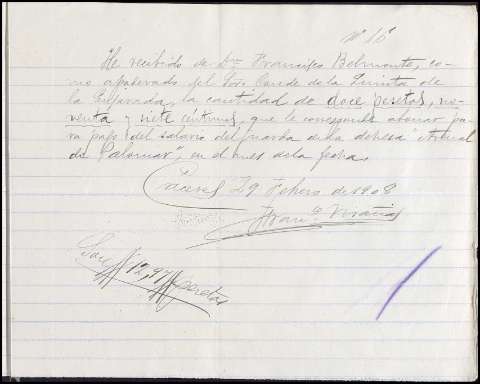 Nº 16
He recibido de Dn Francisco Belmonte, co-
mo apoderado del Sor. Conde de la Quinta de
la Enjarada, la cantidad de doce pesetas, no-
venta y siete céntimos, que le corresponde abonar pa-
ra pago del salario del guarda de la dehesa "Arenal
de Palomar", en el mes de la fecha.
Cáceres 29 Febrero de 1908
Son # 12,97 # pesetas